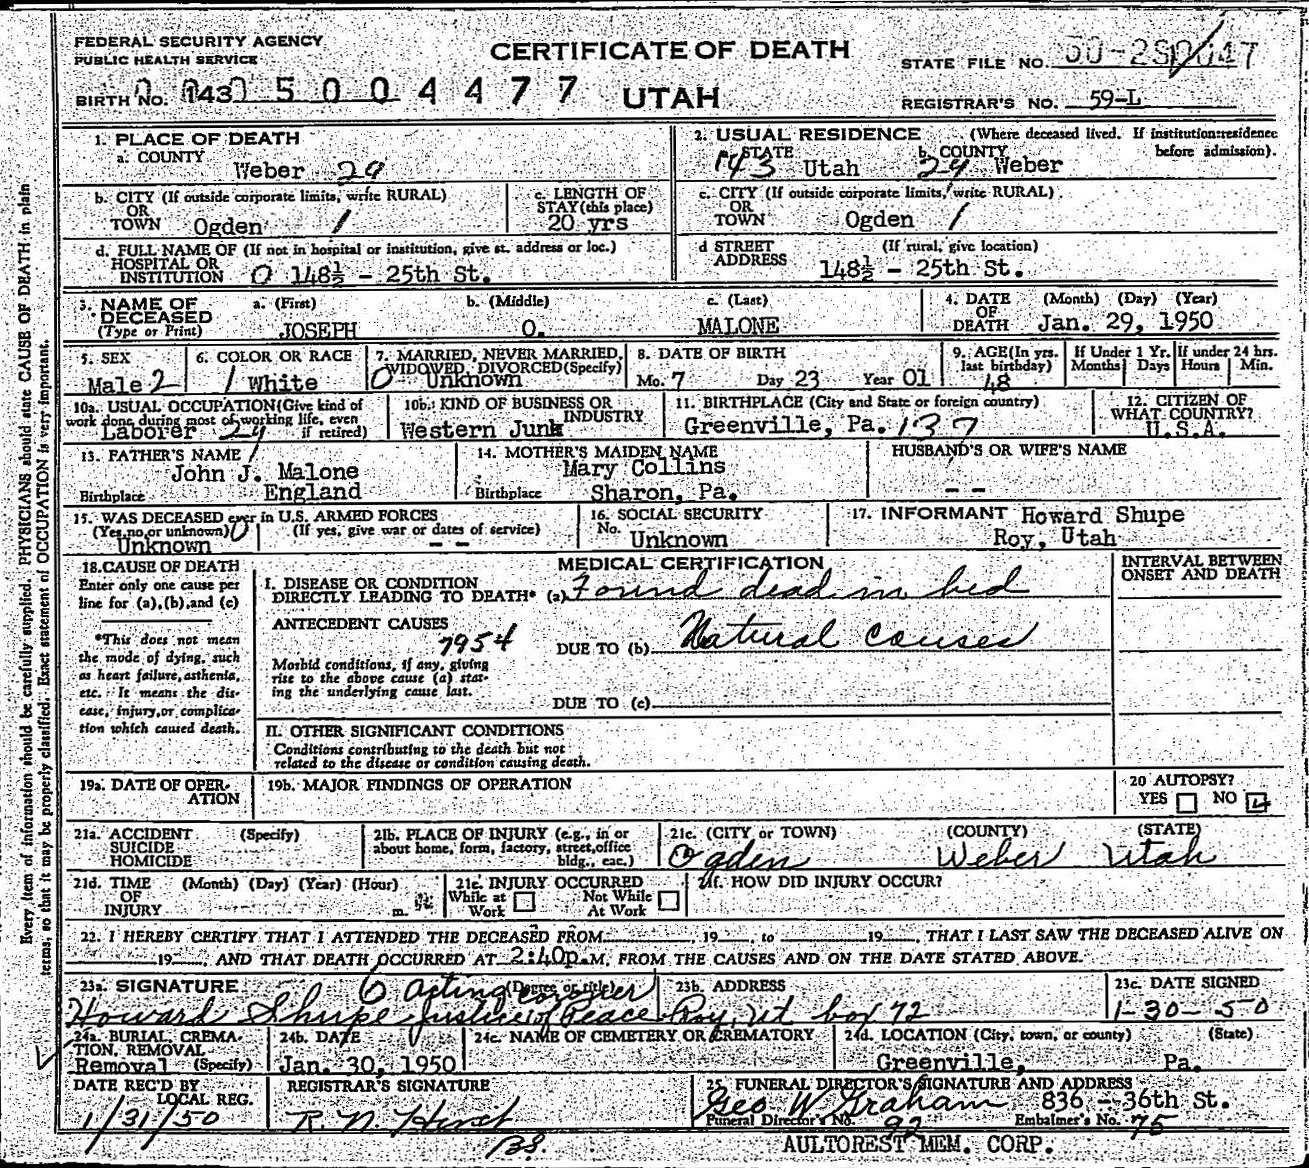 FEDERAL SECURITY AGENCY
PUBLIC HEALTH SERVICE
CERTIFICATE OF DEATH
UTAH
STATE FILE NO.
BIRTH NO. 143 5 0 0 4 4 7 7
REGISTRAR'S NO. 59-L
1. PLACE OF DEATH
a. COUNTY
Weber 29
2. USUAL RESIDENCE (Where deceased lived. If institution:residence before admission).
143 STATE Utah b. COUNTY 29 Weber
b. CITY (If outside corporate limits, write RURAL)
OR
TOWN Ogden 1
c. LENGTH OF
STAY (this place)
20 yrs
c. CITY (If outside corporate limits, write RURAL)
OR
TOWN Ogden 1
d. FULL NAME OF (If not in hospital or institution, give st. address or loc.)
HOSPITAL OR
INSTITUTION 0 148½ - 25th St.
d STREET (If rural, give location)
ADDRESS
148½ - 25th St.
3. NAME OF DECEASED
(Type or Print)
a. (First)
JOSEPH
b. (Middle)
O.
c. (Last)
MALONE
4. DATE OF DEATH (Month) (Day) (Year)
Jan. 29, 1950
5. SEX
Male 2
6. COLOR OR RACE
1 White
7. MARRIED, NEVER MARRIED,
WIDOWED, DIVORCED (Specify)
0 Unknown
8. DATE OF BIRTH
Mo. 7 Day 23 Year 01
9. AGE (In yrs.
last birthday)
48
If Under 1 Yr.
Months Days
If under 24 hrs.
Hours Min.
10a. USUAL OCCUPATION (Give kind of
work done during most of working life, even
if retired)
Laborer 29
10b. KIND OF BUSINESS OR
INDUSTRY
Western Junk
11. BIRTHPLACE (City and State or foreign country)
Greenville, Pa. 137
12. CITIZEN OF
WHAT COUNTRY?
U.S.A.
13. FATHER'S NAME
John J. Malone
Birthplace England
14. MOTHER'S MAIDEN NAME
Mary Collins
Birthplace Sharon, Pa.
HUSBAND'S OR WIFE'S NAME
- -
15. WAS DECEASED ever in U.S. ARMED FORCES
(Yes, no, or unknown) 0 (If yes, give war or dates of service)
Unknown - -
16. SOCIAL SECURITY
No. Unknown
17. INFORMANT Howard Shupe
Roy, Utah
18. CAUSE OF DEATH
Enter only one cause per
line for (a), (b), and (c)
*This does not mean
the mode of dying, such
as heart failure, asthenia,
etc. It means the dis-
ease, injury, or complica-
tion which caused death.
MEDICAL CERTIFICATION
INTERVAL BETWEEN
ONSET AND DEATH
I. DISEASE OR CONDITION
DIRECTLY LEADING TO DEATH* (a) Found dead in bed
ANTECEDENT CAUSES
7954
Morbid conditions, if any, giving
rise to the above cause (a) stat-
ing the underlying cause last.
DUE TO (b) Natural causes
DUE TO (c)
II. OTHER SIGNIFICANT CONDITIONS
Conditions contributing to the death but not
related to the disease or condition causing death.
19a. DATE OF OPER-
ATION
19b. MAJOR FINDINGS OF OPERATION
20 AUTOPSY?
YES NO
21a. ACCIDENT (Specify)
SUICIDE
HOMICIDE
21b. PLACE OF INJURY (e.g., in or
about home, form, factory, street, office
bldg., eac.)
21c. (CITY or TOWN) (COUNTY) (STATE)
Ogden Weber Utah
21d. TIME (Month) (Day) (Year) (Hour)
OF
INJURY m.
21e. INJURY OCCURRED
While at Work Not While At Work
21f. HOW DID INJURY OCCUR?
22. I HEREBY CERTIFY THAT I ATTENDED THE DECEASED FROM , 19 to 19 , THAT I LAST SAW THE DECEASED ALIVE ON
19 , AND THAT DEATH OCCURRED AT 2:40p.M, FROM THE CAUSES AND ON THE DATE STATED ABOVE.
23a. SIGNATURE 6 acting coroner (Degree or title)
Howard Shupe Justice of Peace
23b. ADDRESS
Roy, Ut box 72
23c. DATE SIGNED
1-30-50
24a. BURIAL, CREMA-
TION, REMOVAL
Removal (Specify)
24b. DATE
Jan. 30, 1950
24c. NAME OF CEMETERY OR CREMATORY
24d. LOCATION (City, town, or county) (State)
Greenville, Pa.
DATE REC'D BY
LOCAL REG.
1/31/50
REGISTRAR'S SIGNATURE
R. N. Hirst
BS.
25. FUNERAL DIRECTOR'S SIGNATURE AND ADDRESS
Geo W Graham 836 - 36th St.
Funeral Director's No. 92 Embalmer's No. 75
AULTOREST MEM. CORP.
Every item of information should be carefully supplied. PHYSICIANS should state CAUSE OF DEATH in plain
terms, so that it may be properly classified. Exact statement of OCCUPATION is very important.